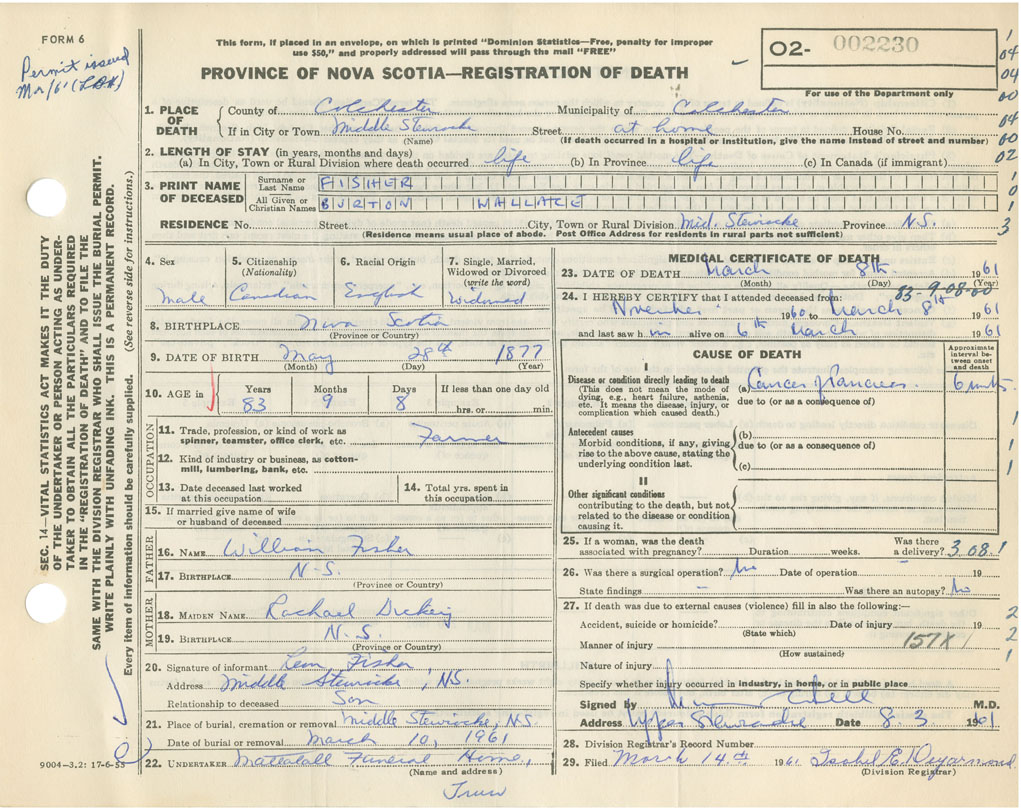 FORM 6
Permit issued
This form, if placed in an envelope, on which is printed "Dominion Statistics—Free, penalty for improper
use $50," and properly addressed will pass through the mail "FREE"
PROVINCE OF NOVA SCOTIA—REGISTRATION OF DEATH
O2- 002230
For use of the Department only
1. PLACE OF DEATH
County of Colchester Municipality of Colchester
If in City or Town Middle Stewiacke Street at home House No.
(Name) (If death occurred in a hospital or institution, give the name instead of street and number)
2. LENGTH OF STAY (in years, months and days)
(a) In City, Town or Rural Division where death occurred life (b) In Province life (c) In Canada (if immigrant)
3. PRINT NAME OF DECEASED
Surname or Last Name FISHER
All Given or Christian Names BURTON WALLACE
RESIDENCE No. Street City, Town or Rural Division Mid. Stewiacke Province N.S.
(Residence means usual place of abode. Post Office Address for residents in rural parts not sufficient)
4. Sex
Male
5. Citizenship (Nationality)
Canadian
6. Racial Origin
English
7. Single, Married, Widowed or Divorced (write the word)
Widowed
8. BIRTHPLACE Nova Scotia
(Province or Country)
9. DATE OF BIRTH May 28th 1877
(Month) (Day) (Year)
10. AGE in Years Months Days If less than one day old
83 9 8 hrs. or min.
OCCUPATION
11. Trade, profession, or kind of work as spinner, teamster, office clerk, etc. Farmer
12. Kind of industry or business, as cotton-mill, lumbering, bank, etc.
13. Date deceased last worked at this occupation
14. Total yrs. spent in this occupation
15. If married give name of wife or husband of deceased
FATHER
16. NAME William Fisher
17. BIRTHPLACE N.S.
(Province or Country)
MOTHER
18. MAIDEN NAME Rachael
19. BIRTHPLACE N.S.
(Province or Country)
20. Signature of informant Fisher
Address Middle Stewiacke, N.S.
Relationship to deceased Son
21. Place of burial, cremation or removal Middle Stewiacke, N.S.
Date of burial or removal March 10, 1961
22. UNDERTAKER Mattatall Funeral Home,
(Name and address)
Truro
9004-3.2: 17-6-55
MEDICAL CERTIFICATE OF DEATH
23. DATE OF DEATH March 8th 1961
(Month) (Day) (Year)
83-9-08-00
24. I HEREBY CERTIFY that I attended deceased from:
November 1960 to March 8th 1961
and last saw him alive on 6th March 1961
CAUSE OF DEATH
Approximate interval between onset and death
I
Disease or condition directly leading to death
(This does not mean the mode of dying, e.g., heart failure, asthenia, etc. It means the disease, injury, or complication which caused death.)
(a) Cancer of Pancreas 6 mnths
due to (or as a consequence of)
Antecedent causes
Morbid conditions, if any, giving rise to the above cause, stating the underlying condition last.
(b)
due to (or as a consequence of)
(c)
II
Other significant conditions
contributing to the death, but not related to the disease or condition causing it.
25. If a woman, was the death associated with pregnancy? Duration weeks. Was there a delivery? 3.08
26. Was there a surgical operation? No Date of operation – 19
State findings – Was there an autopsy? No
27. If death was due to external causes (violence) fill in also the following:—
Accident, suicide or homicide? Date of injury 19
(State which)
Manner of injury 157X
(How sustained)
Nature of injury
Specify whether injury occurred in industry, in home, or in public place
Signed By M.D.
Address Upper Stewiacke Date 8.3 1961
28. Division Registrar's Record Number
29. Filed March 14th 1961 Isabel E.
(Division Registrar)
SEC. 14—VITAL STATISTICS ACT MAKES IT THE DUTY
OF THE UNDERTAKER OR PERSON ACTING AS UNDER-
TAKER TO OBTAIN ALL THE PARTICULARS REQUIRED
IN THE "REGISTRATION OF DEATH" AND TO FILE THE
SAME WITH THE DIVISION REGISTRAR WHO SHALL ISSUE THE BURIAL PERMIT.
WRITE PLAINLY WITH UNFADING INK. THIS IS A PERMANENT RECORD.
Every item of information should be carefully supplied. (See reverse side for instructions.)
1
04
04
00
04
00
02
1
0
1
3
1
1
1
1
2
2
1